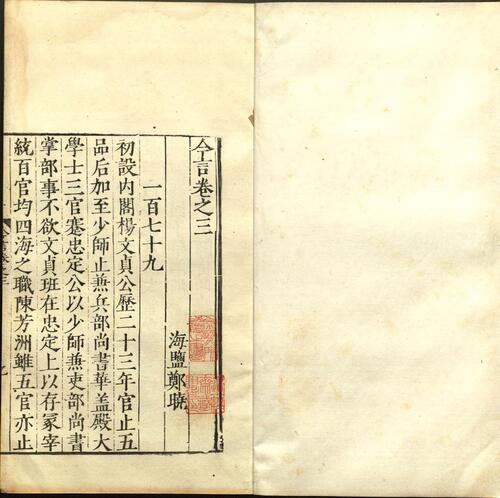 今言卷之三
海鹽鄭曉
一百七十九
初設内閣楊文貞公歷二十三年官止五
品后加至少師止兼兵部尚書華盖殿大
學士三官蹇忠定公以少師兼吏部尚書
掌部事不欲文貞班在忠定上以存冢宰
統百官均四海之職陳芳洲雖五官亦止